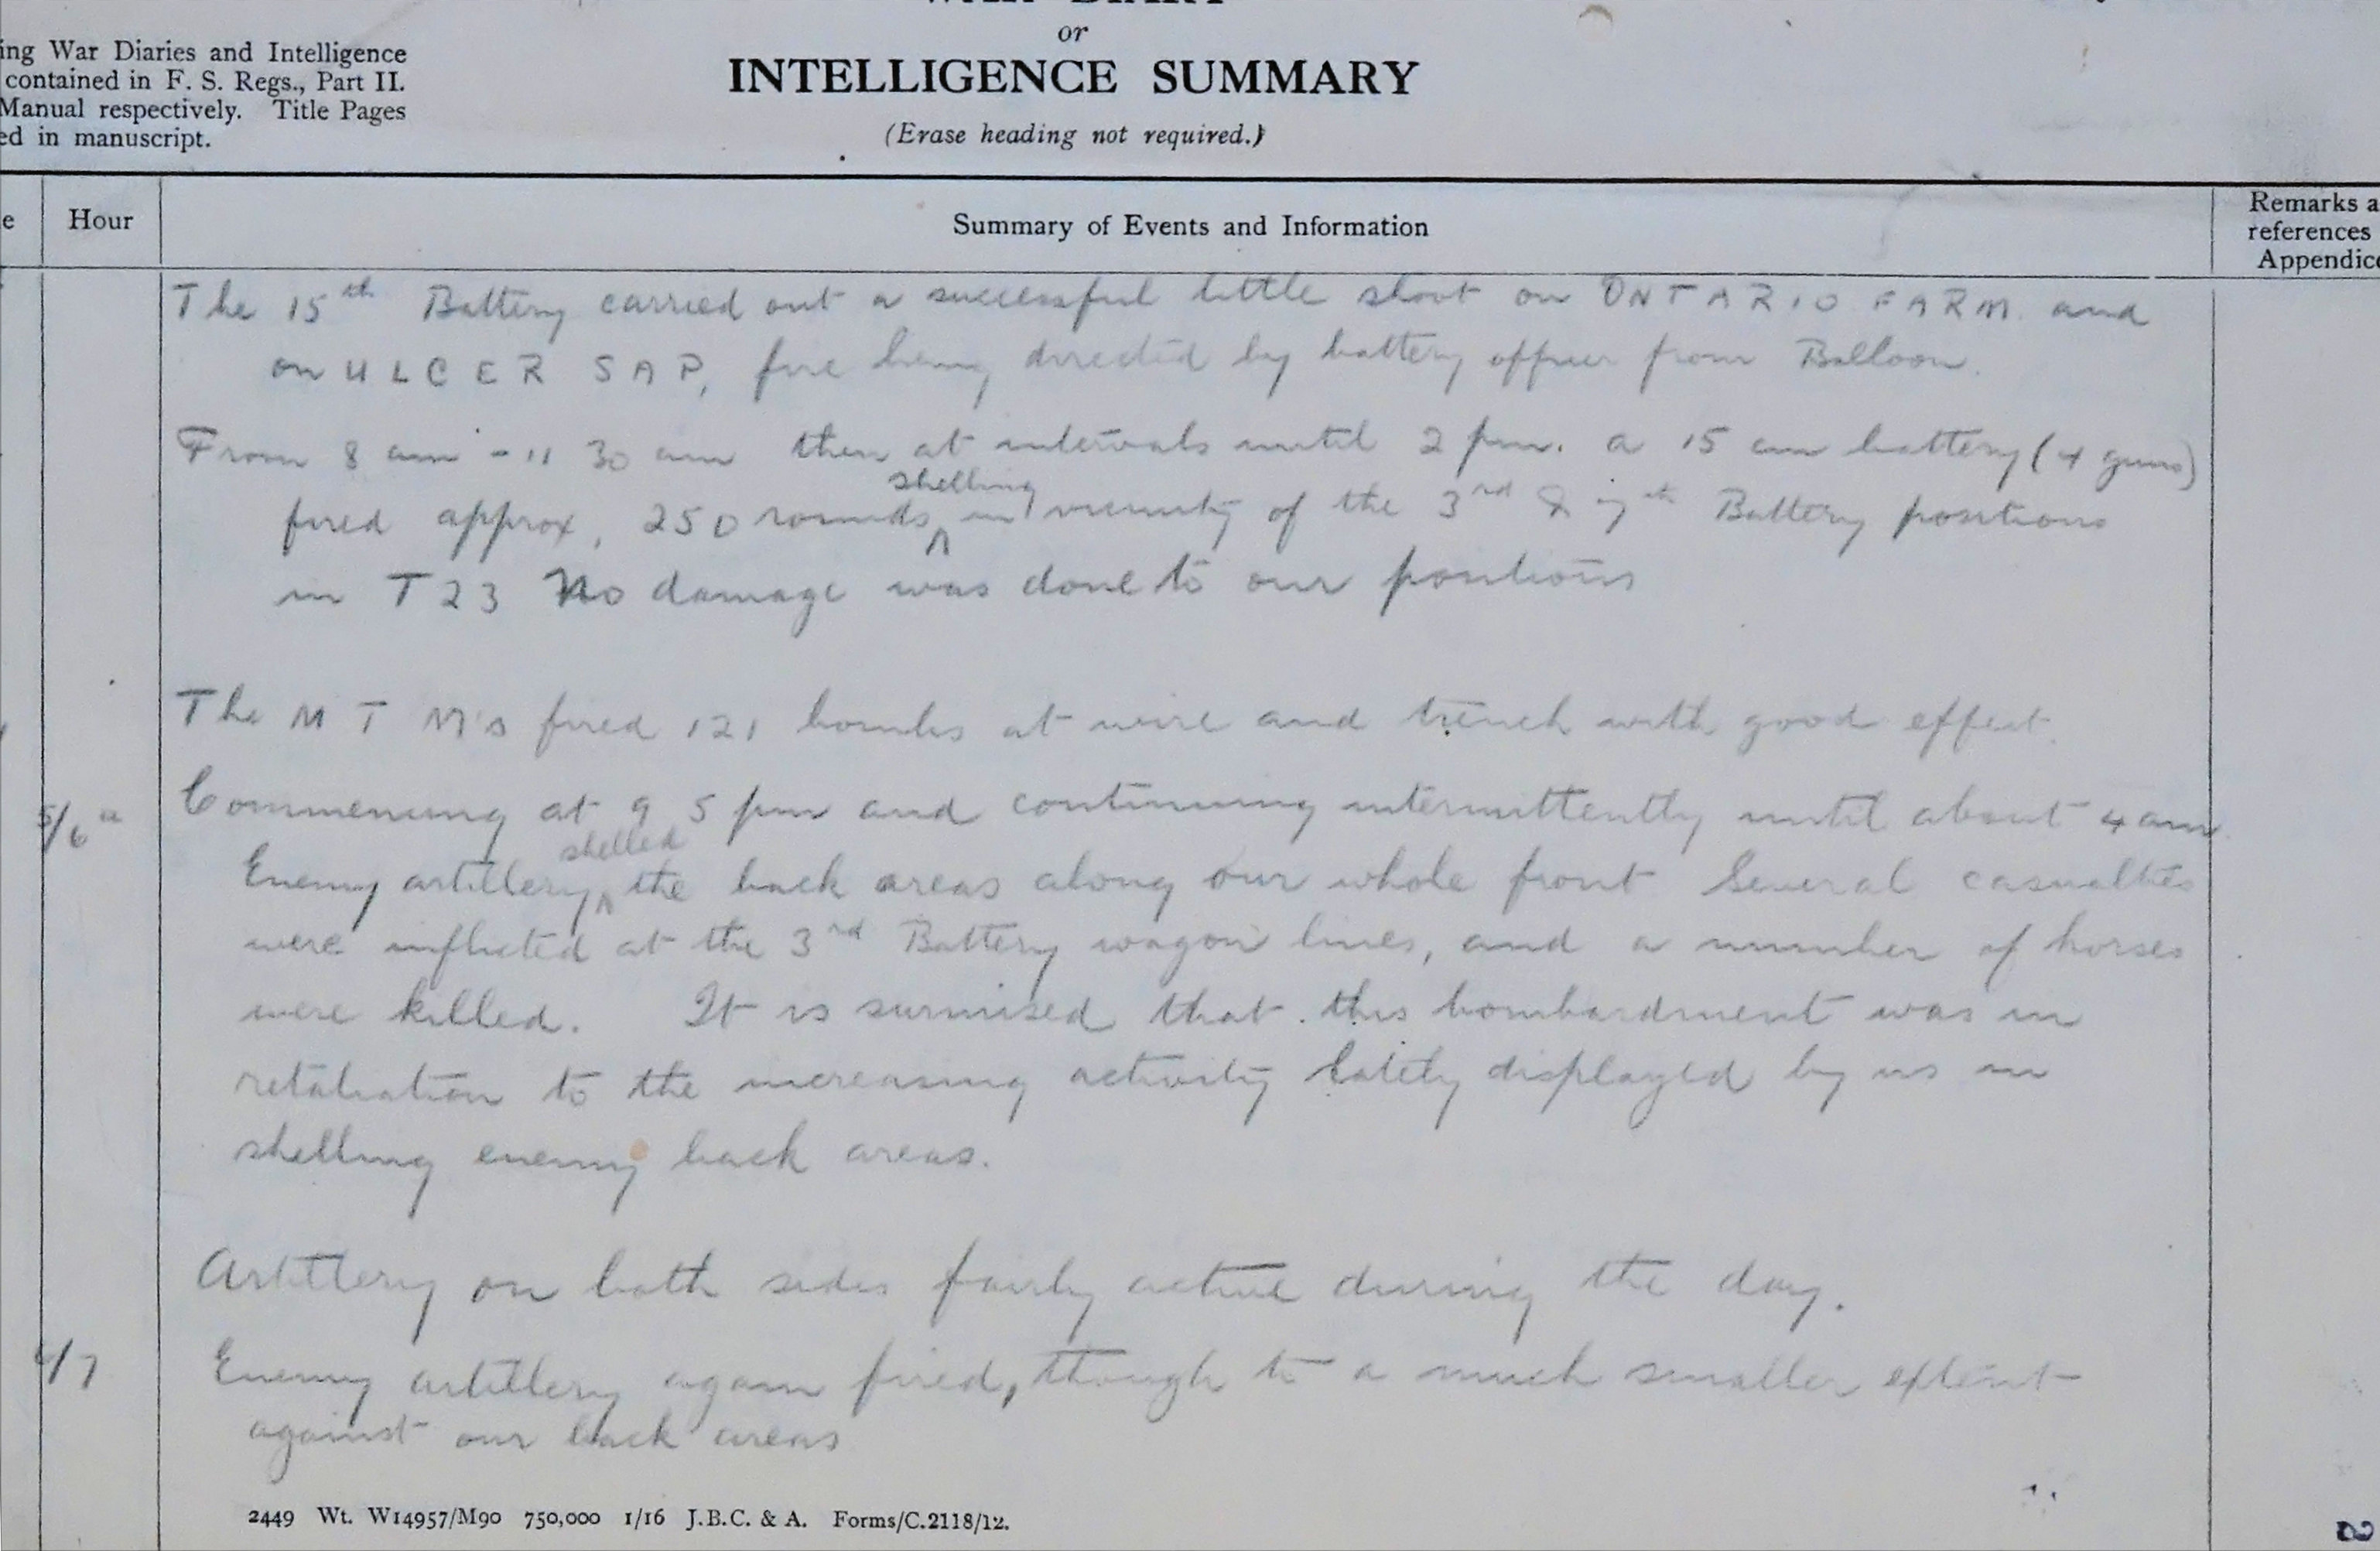 WAR DIARY
or
INTELLIGENCE SUMMARY
(Erase heading not required.)
ing War Diaries and Intelligence
contained in F. S. Regs., Part II.
Manual respectively. Title Pages
ed in manuscript.
e Hour Summary of Events and Information
Remarks a
references
Appendice
The 15th Battery carried out a successful little shoot on ONTARIO FARM. and
on ULCER SAP, fire being directed by battery officer from Balloon.
From 8 am - 11 30 am then at intervals until 2 pm. a 15 cm battery (4 guns)
shelling
fired approx, 250 rounds in vicinity of the 3rd & 7th Battery positions
in T 23 No damage was done to our positions
The M T M's fired 121 bombs at wire and trench with good effect.
5/6th Commencing at 9 5 pm and continuing intermittently until about 4 am
shelled
Enemy artillery the back areas along our whole front Several casualties
were inflicted at the 3rd Battery wagon lines, and a number of horses
were killed. It is surmised that this bombardment was in
retaliation to the increasing activity lately displayed by us in
shelling enemy back areas.
Artillery on both sides fairly active during the day.
6/7 Enemy artillery again fired, though to a much smaller extent
against our back areas
2449 Wt. W14957/M90 750,000 1/16 J.B.C. & A. Forms/C.2118/12.